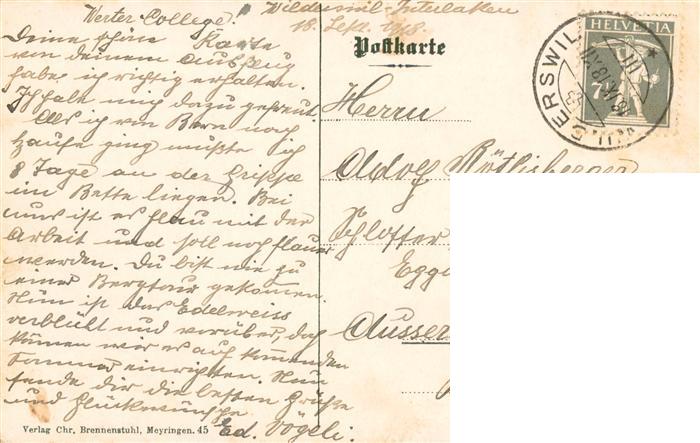 Werter College!
Wilderswil-Interlaken
18. Sept. 1918.
Deine schöne Karte
von deinem Ausflug
habe ich richtig erhalten.
Ich habe mich dazu gefreut.
Als ich von Bern nach
Hause ging mußte ich
8 Tage an der Grippe
im Bette liegen. Bei
uns ist es flau mit der
Arbeit und soll noch flauer
werden. Du bist nie zu
einer Bergtour gekommen.
Nun ist das Edelweiss
verblüht und vorüber, doch
können wir es auf kommenden
Sommer einrichten. Nun
sende dir die besten Grüße
und Glückwünsche
Ed. Vögeli.
Postkarte
HELVETIA
7½
Herrn
Adolf Röthlisberger
Schlosser
Egg
Ausser
Verlag Chr. Brennenstuhl, Meyringen. 45